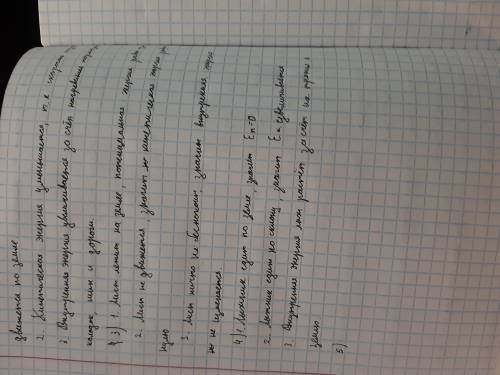 движется по земле
2. Кинетическая энергия уменьшается, т.к скорость
3. Внутренняя энергия увеличивается за счёт нагревания
колодок, шин и дороги.
3) 1. Лист лежит на земле, потенциальная энергия
2. Лист не движется, значит кинетическая
нулю
3 Лист ничто не беспокоит, значит внутренняя
не изменяется
4) 1. Лыжник едит по земле, значит Eп=0
2 Лыжник едит по склону, значит Eк увеличивается
3. Внутренняя энергия лыж растёт за счёт их трения
землю
5)